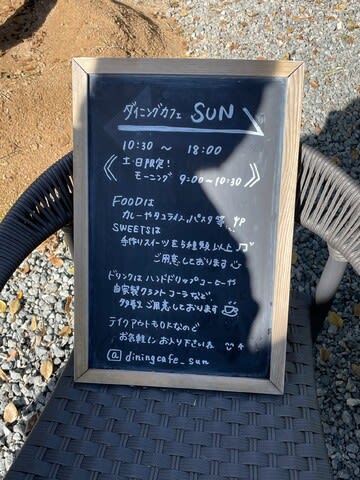 ダイニングカフェ SUN
10:30 〜 18:00
土・日限定!
モーニング 9:00〜10:30
FOODは
カレーやタコライス、パスタ等
SWEETSは
手作りスイーツを5種類以上
ご用意しております
ドリンクはハンドドリップコーヒーや
自家製クラフトコーラなど、
多数ご用意しております
テイクアウトもOKなので
お気軽にお入り下さいネ
@diningcafe_sun